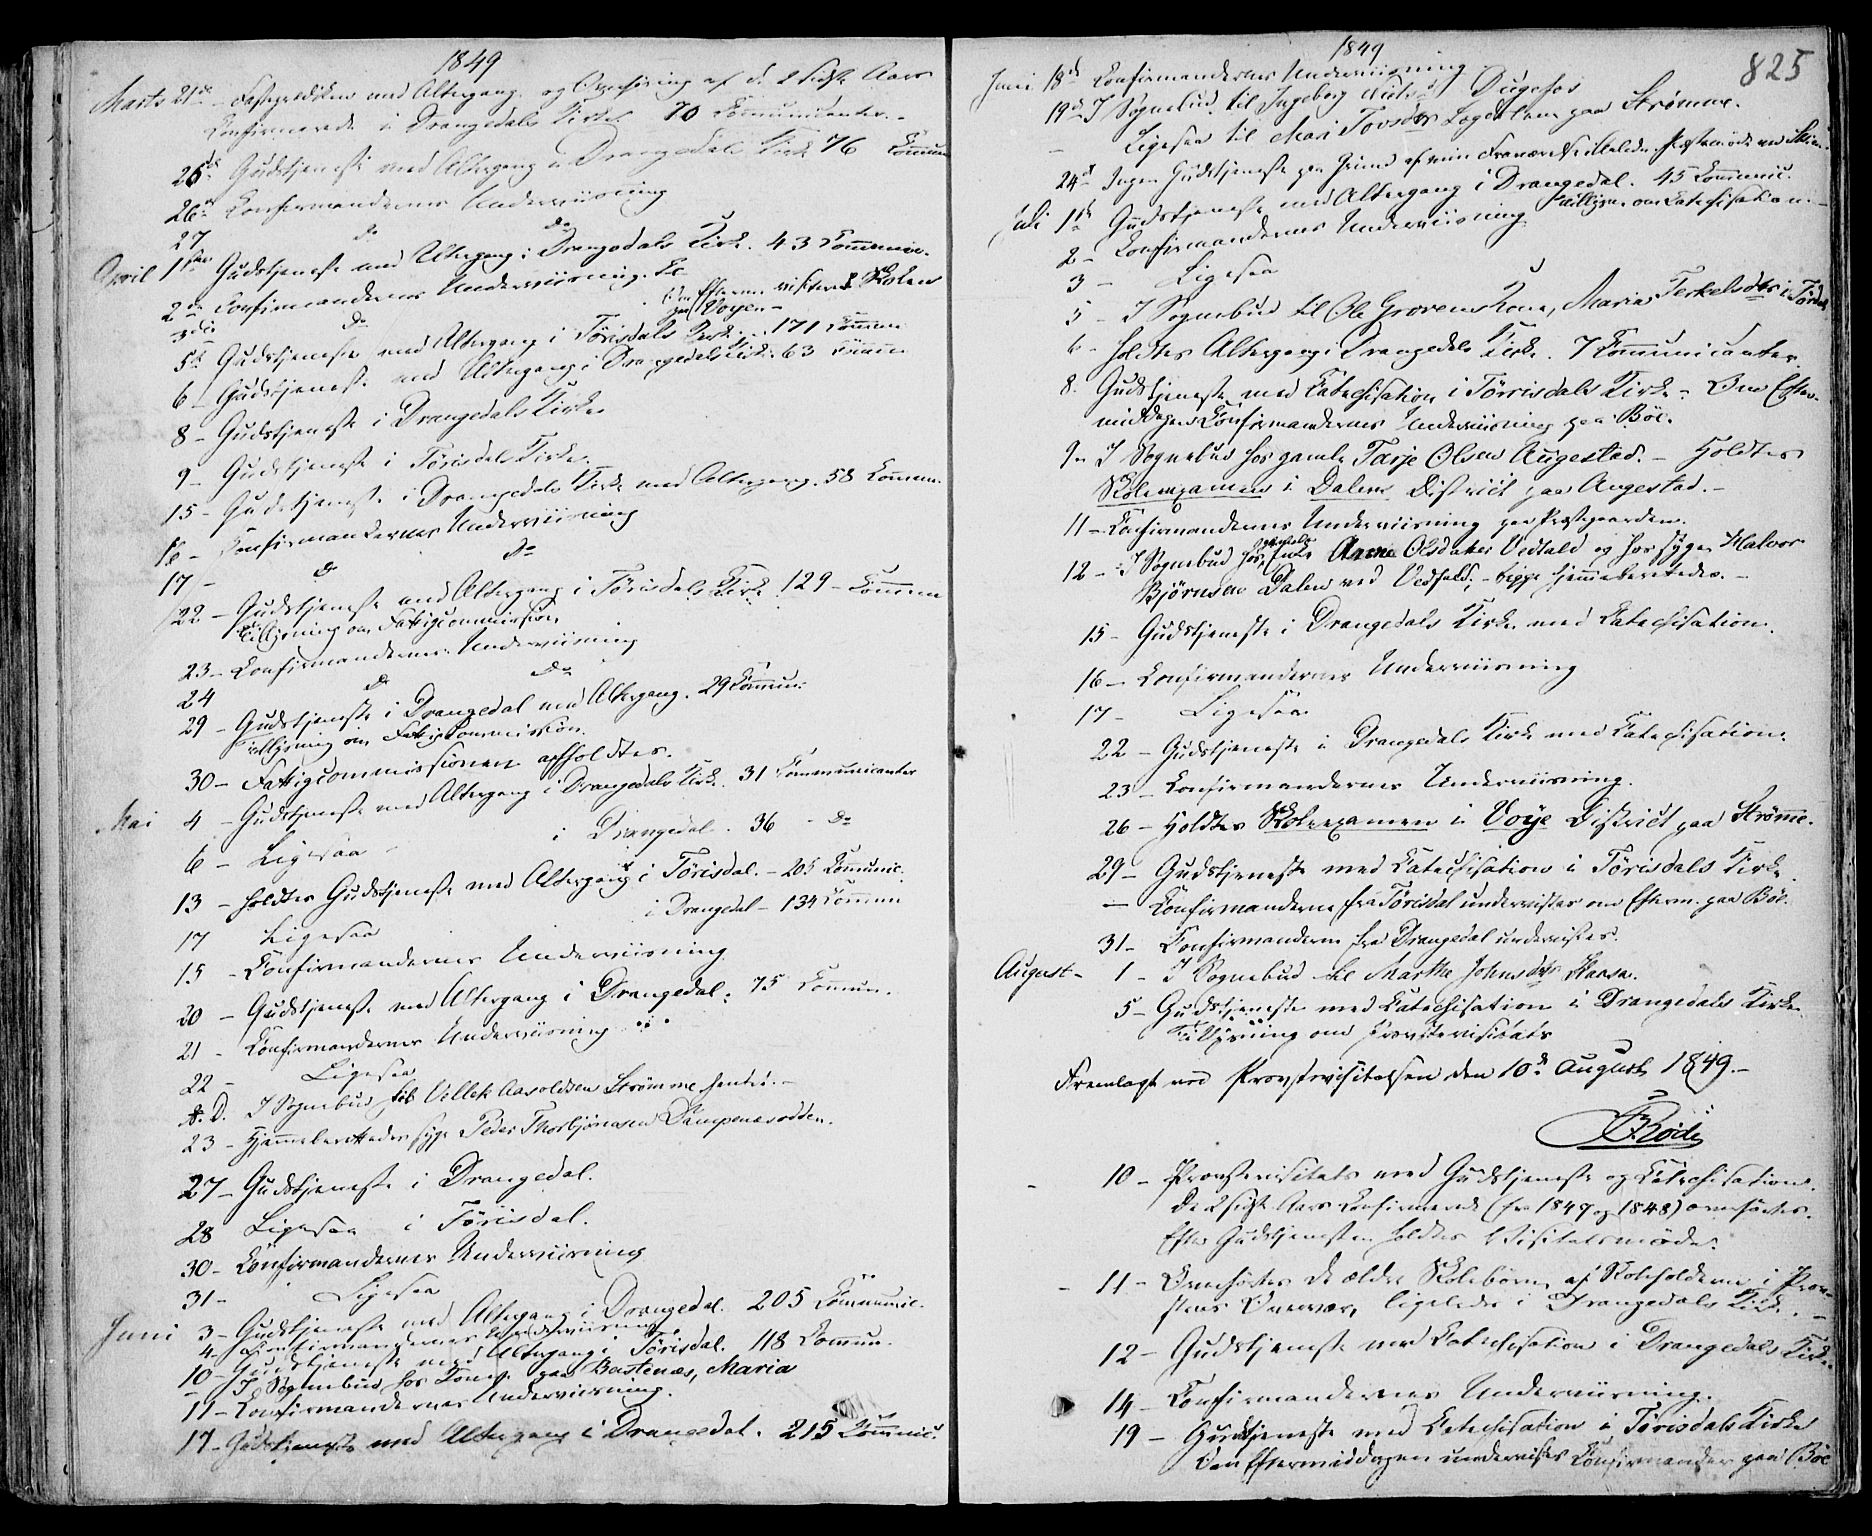 1849
Marts 21de Fasteprædiken med Altergang og Overhøring af de 2 sidste Aars
Confirmerede i Drangedals Kirke 70 Communicanter.
25de Gudstjeneste med Altergang i Drangedals Kirke 76 Commun
26de Confirmandernes Underviisning
27 do do
April 1ste Gudstjeneste med Altergang i Drangedals Kirke. 43 Communic.
2de Confirmandernes Underviisning.
3die do visiteredes Skolen
paa Voje.-
5te Gudstjeneste med Altergang i Tørisdals Kirke. 171 Commun
6 - Gudstjeneste med Altergang i Drangedals Kirke 63 Commun
8 - Gudstjeneste i Drangedals Kirke
9 - Gudstjeneste i Tørisdals Kirke.
15 - Gudstjeneste i Drangedals Kirke med Altergang. 58 Commun.
16 - Confirmandernes Underviisning
17 - do do
22 - Gudstjeneste med Altergang i Tørisdals Kirke 129 - Commun
Tillysning om Fattigcommission
23 - Confirmandernes Underviisning
24 do do
29 - Gudstjeneste i Drangedal med Altergang. 29 Commun:
Tillysning om Fattigcommission.
30 - Fattigcommissionen afholdtes.
Mai 4 - Gudstjeneste med Altergang i Drangedals Kirke. 31 Communicanter
6 - Ligesaa - i Drangedal. 36 - do
13 - holdtes Gudstjeneste med Altergang i Tørisdal. - 205 Communic.
17 Ligesaa i Drangedal - 134 Commun
15 - Confirmandernes Underviisning
20 - Gudstjeneste med Altergang i Drangedal. 75 Commun.
21 - Confirmandernes Underviisning
22 - Ligesaa
s. D. I Sognebud til Vellek Aasoldsen Strømme hentet.-
23 - Hjemmeberettedes syge Peder Thorbjørnsen Dampenesodden.
27 - Gudstjeneste i Drangedal.
28 Ligesaa i Tørisdal.
30 - Confirmandernes Underviisning
31 - Ligesaa
Juni 3 - Gudstjeneste med Altergang i Drangedal. 205 Communic.
4 - Confirmandernes Underviisning
10 - Gudstjeneste med Altergang i Tørisdal. 118 Commun.
- I Sognebud hos Konen paa Bostenæs, Maria
11 - Confirmandernes Underviisning.
17 - Gudstjeneste med Altergang i Drangedal. 215 Communic.
1849
825
Juni 18de Confirmandernes Underviisning
19de I Sognebud til Ingeborg
- Ligesaa til Mari Tovsdtr paa Strømme.
24de Ingen Gudstjeneste paa Grund af min Fraværelse
Juli 1ste Gudstjeneste med Altergang i Drangedal. 45 Communic.
Tillysn. om Catechisation.
2 - Confirmandernes Underviisning
3 - Ligesaa
5 - I Sognebud til Ole Grovens Kone, Maria Terkelsdtr i Tørisdal
6 - holdtes Altergang i Drangedals Kirke. 7 Communicanter
8. Gudstjeneste med Catechisation i Tørrisdals Kirke - Om Efter-
middagen Confirmandernes Underviisning paa Bøe.
9 - I Sognebud hos gamle Tarje Olsen Augestad. - Holdtes
Skoleexamen i Dalens District paa Augestad.-
11 - Confirmandernes Underviisning paa Præstegaarden.
12 - I Sognebud hos Enke Anne Olsdatter Vedfald og hos syge Halvor
Bjørnsen Dalen ved Vedfald, - begge hjemmeberettedes.-
15 - Gudstjeneste i Drangedals Kirke med Catechisation.
16 - Confirmandernes Underviisning
17 - Ligesaa
22 - Gudstjeneste i Drangedals Kirke med Catechisation.
23 - Confirmandernes Underviisning.
26 - Holdtes Skoleexamen i Voje District paa Strømme.
29 - Gudstjeneste med Catechisation i Tørisdals Kirke.
- Confirmanderne fra Tørisdal undervistes om Efterm. paa Bøe
31 - Confirmanderne fra Drangedal undervistes.
August - 1 - I Sognebud til Marthe Johnsdtr
5 - Gudstjeneste med Catechisation i Drangedals Kirke.
Tillysning om Provstevisitats
Fremlagt ved Provstevisitatsen den 10de August 1849.-
10 - Provstevisitats med Gudstjeneste og Catechisation.
De 2 sidste Aars Confirmerede (fra 1847 og 1848) overhørtes.
Efter Gudstjenesten holdtes Visitatsmøde.
- 11 - Overhørtes de ældre Skolebørn af Skoleholderne i Prov-
stens Overvær, ligeledes i Drangedals Kirke.-
12 - Gudstjeneste med Catechisation i Drangedals Kirke
14 - Confirmandernes Underviisning.
19 - Gudstjeneste med Catechisation i Tørisdals Kirke
Om Eftermiddagen undervistes Confirmander paa Bøe